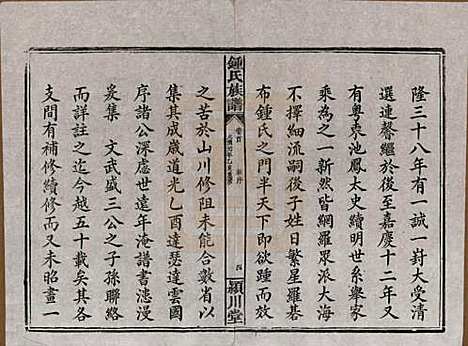 隆三十八年有一誠一對大受清
選連馨繼於後至嘉慶十二年又
有粵東池鳳太史續明世系舉家
乘為之一新然皆網羅眾派大海
不擇細流嗣後子姓日繁星羅碁
布鍾氏之門半天下即欲續修
鍾氏族譜
卷首
新序
四
潁川堂
之苦於山川修阻未能合數省以
集其成歲道光乙酉達瑟達雲國
序諸公深慮世遠年淹譜書漶漫
爰集文武盛三公之子孫聯絡
而詳註之迄今越五十載矣其各
支間有補修續修而又未昭畫一